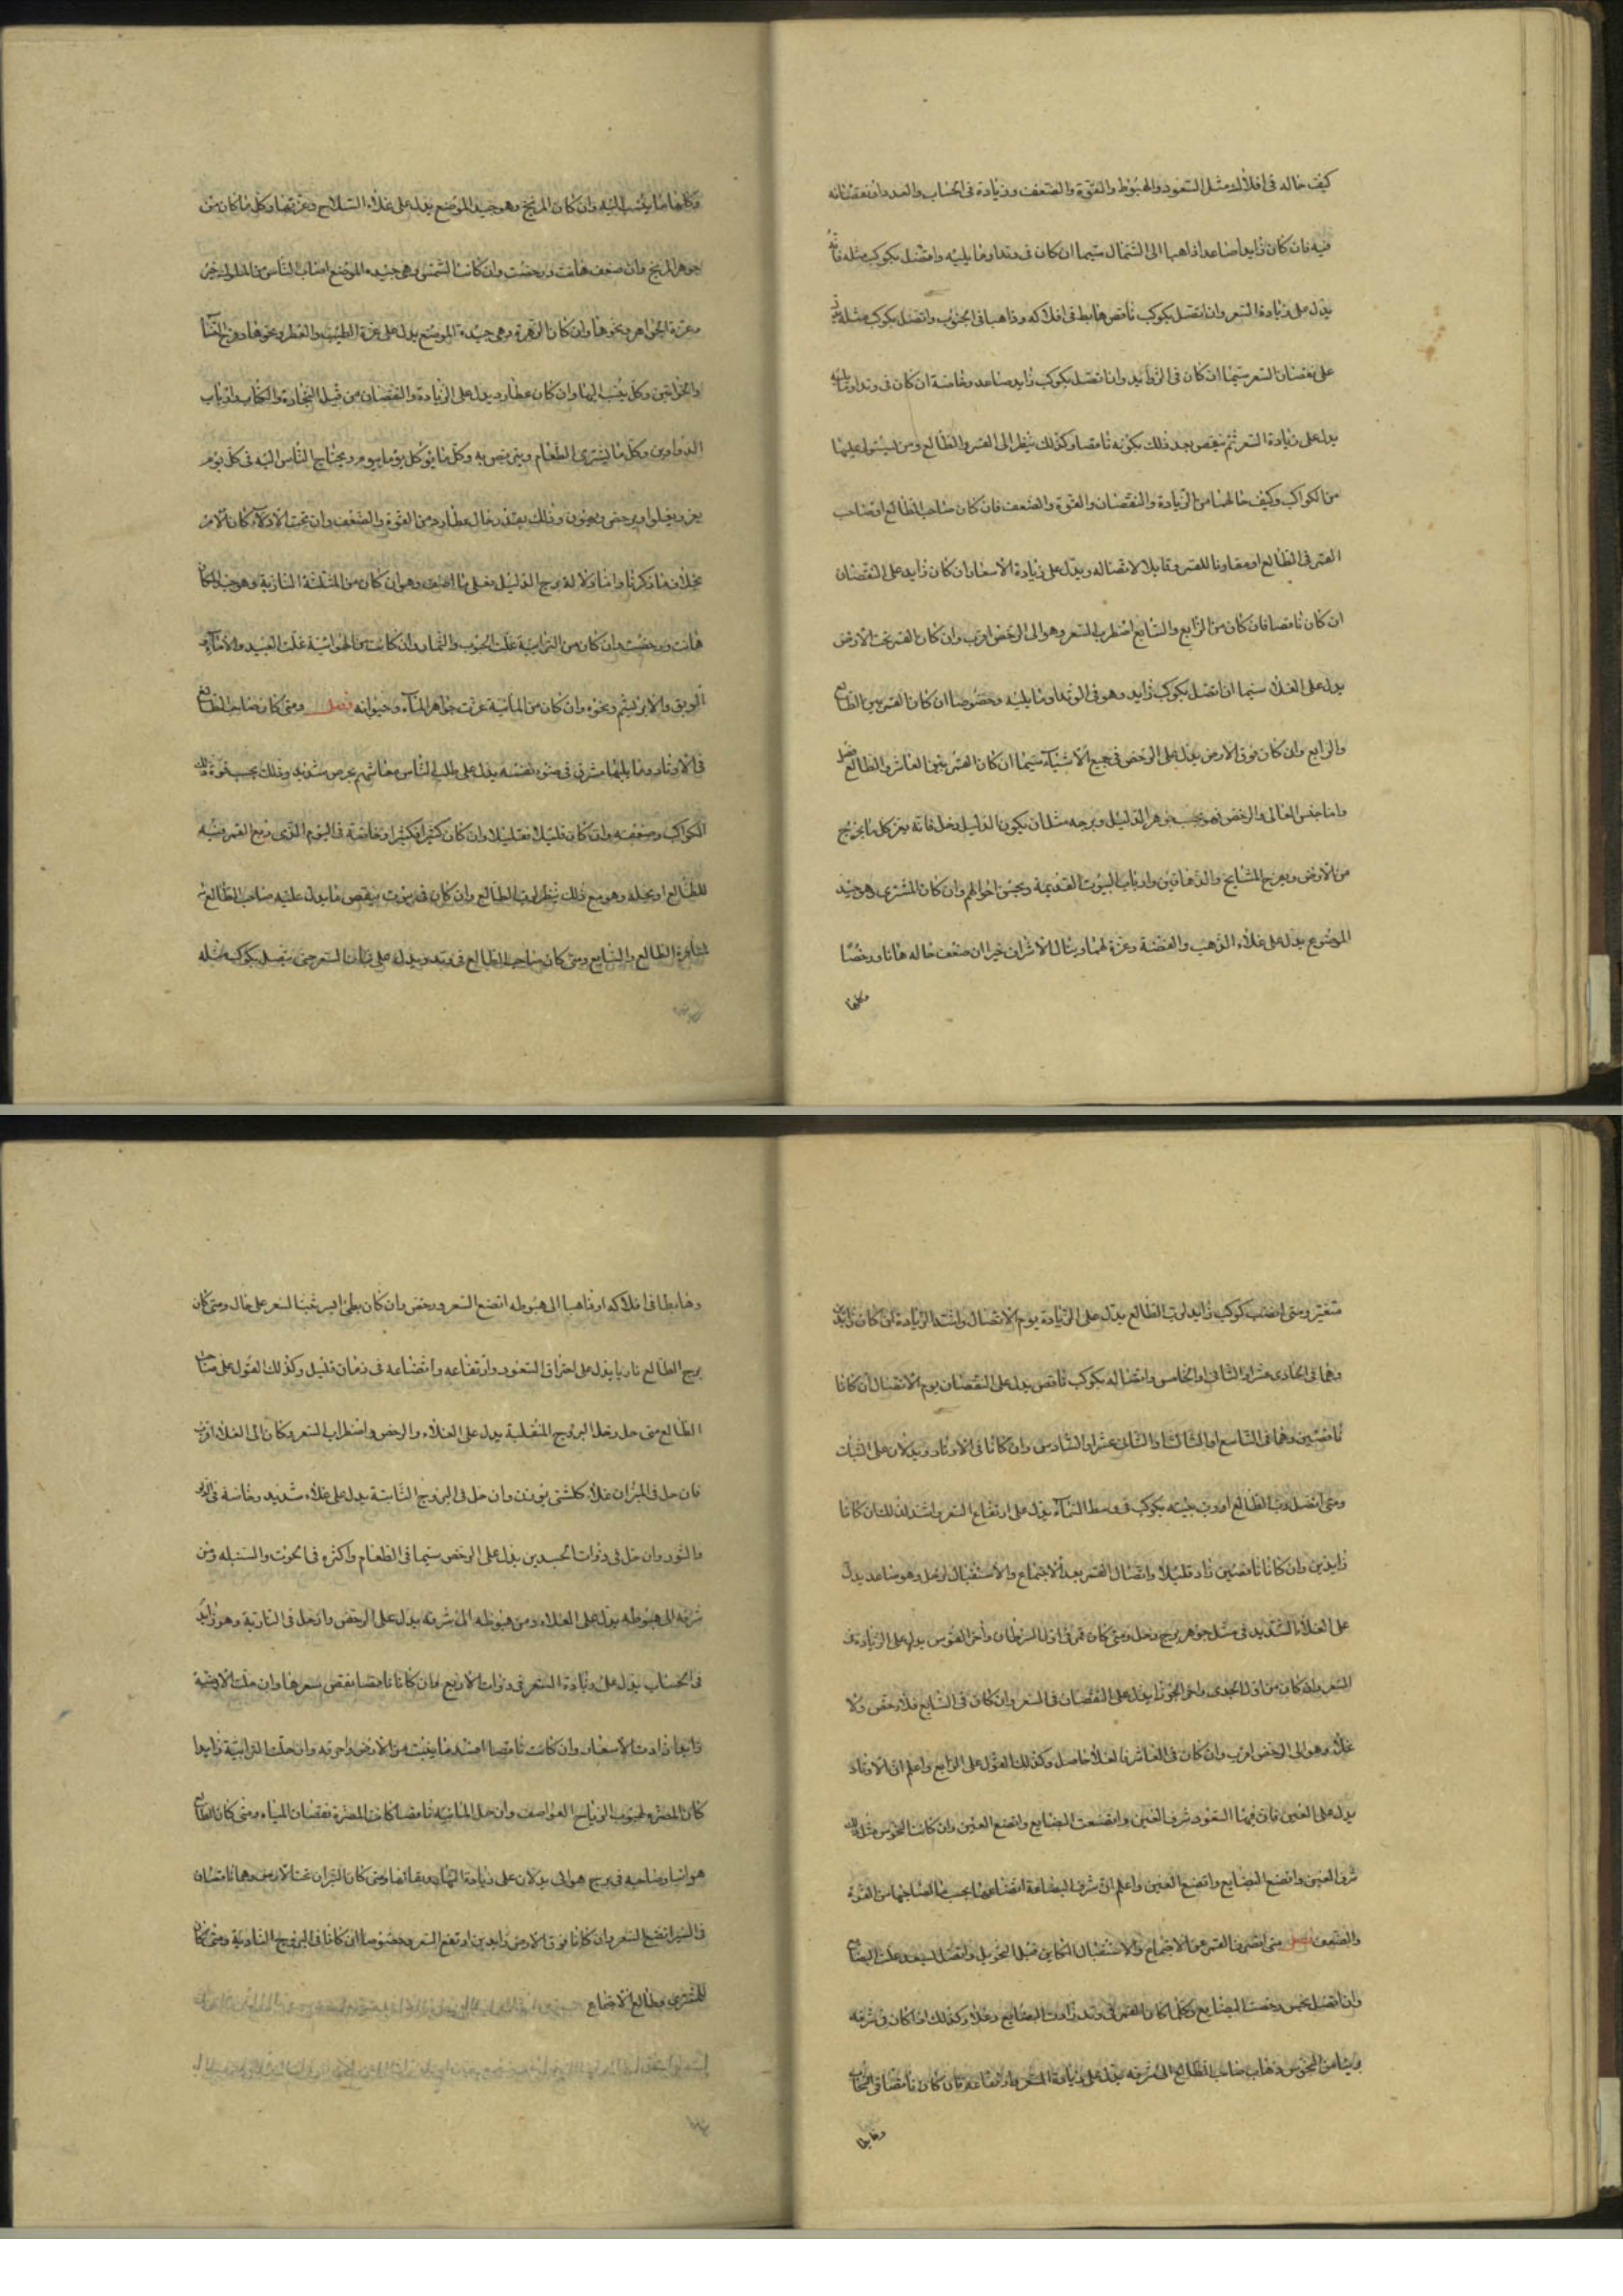 كيف حاله فى افلاكه مثل الصعود والهبوط والقوة والضعف وزيادة فى الحساب والعدد او نقصانه
فيه فان كان زايدا صاعدا ذاهبا الى الشمال سيما ان كان فى وتد او ما يليه واتصل بكوكب مثله فانه
يدل على زيادة السعر وان اتصل بكوكب ناقص هابط فى افلاكه وذاهبا فى الجنوب واتصل بكوكب مثله
على نقصان السعر سيما ان كان فى الزوايد وان اتصل بكوكب زايد صاعد وخاصة ان كان فى وتد او ما يليه
يدل على زيادة السعر ثم ينقص بعد ذلك بكونه ناقصا وكذلك ينظر الى القمر والطالع ومن يستولى عليهما
من الكواكب وكيف حالهما من الزيادة والنقصان والقوة والضعف فان كان صاحب الطالع او صاحب
القمر فى الطالع او مقارنا للقمر وقابلا لاتصاله ويدل على زيادة الاسعار ان كان زايد على النقصان
ان كان ناقصا فان كان من الرابع والسابع اضطرب السعر وهو الى الرخص اقرب وان كان القمر تحت الارض
يدل على الغلاء سيما ان اتصل بكوكب زايد وهو فى الوتد او ما يليه وخصوصا ان كان القمر بين الطالع
والرابع وان كان فوق الارض يدل على الرخص فى جميع الاشياء سيما ان كان القمر بين العاشر والطالع فصل
واما جنس الغالى والرخص فهو بحسب جوهر الدليل وبرجه مثل ان يكون الدليل زحل فانه يعز كل ما يخرج
من الارض ويفرح المشايخ والدهاقين وارباب البيوت القديمة ويحسن احوالهم وان كان المشترى وهو جيد
الموضع يدل على غلاء الذهب والفضة وعزة لهما وينال الاشراف خيرا ان ضعف حاله هانا ورخصا
وكلما
وكلما ما ينسب اليه وان كان المريخ وهو جيد الموضع يدل على غلاء السلاح وعزتها وكل ما كان من
جوهر المريخ وان ضعف هانت ورخصت وان كانت الشمس وهى جيدة الموضع اصاب الناس من الملوك خير
وعزة الجواهر ونحوها وان كان الزهرة وهى جيدة الموضع يدل على عزة الطيب والعطر ونحوها وفرح النساء
والخواتين وكل ينسب اليها وان كان عطارد يدل على الزيادة والنقصان من قبل التجارة والكتاب وارباب
الدواوين وكل ما يشترى الطعام ويتربص به وكل ما يؤكل يوما بيوم ويحتاج الناس اليه فى كل يوم
يعز ويغلوا ويرخص ويهون وذلك بقدر حال عطارد من القوة والضعف وان تحت الادلاء كان الامر
بخلاف ما ذكرنا واما دلالة برج الدليل فعلى ما اصف وهو ان كان من المثلثة النارية وهو جيد
هانت ورخصت وان كان من الترابية غلت الحبوب والثمار وان كانت من الهوائية غلت العبيد والاماء
الرقيق والابريشم ونحوه وان كان من المائية عزت جواهر الماء وحيوانه فصل ومتى كان صاحب الطالع
فى الاوتاد وما يليها مشرق فى ضوء نفسه يدل على طلب الناس معاشهم بحرص شديد وذلك بحسب قوة تلك
الكواكب وضعفه وان كان قليلا فقليلا وان كان كثيرا فكثيرا وخاصة فى اليوم الذى دفع القمر فيه
للطالع او يحله وهو مع ذلك ينظر لرب الطالع وان كان فى بيوت ينقص ما يدل عليه صاحب الطالع
الطالع والسابع ومتى كان صاحب الطالع فى وتد ويدل على ثبات السعر حتى يتصل بكوكب مثله
متغير ومتى اتصلت كوكب زايد لرب الطالع يدل على الزيادة يوم الاتصال واشد الزيادة ان كان زايدين
وهما فى الحادى عشر او الثانى او الخامس واتصاله بكوكب ناقص يدل على النقصان يوم الاتصال ان كانا
ناقصين وهما فى التاسع او الثالث او الثانى عشر او السادس وان كانا فى الاوتاد ويدلان على الثبات
ومتى اتصل رب الطالع او رب بيته بكوكب فى وسط السماء يدل على ارتفاع السعر واشد لذلك ان كانا
زايدين وان كانا ناقصين زاد قليلا واتصال القمر بعد الاجتماع والاستقبال لزحل وهو صاعد يدل
على الغلاء الشديد فى مثل جوهر برج زحل ومتى كان قمر فى اول السرطان واخر القوس يدل على الزيادة فى
السعر وان كان من اول الجدى واخر الجوزا يدل على النقصان فى السعر وان كان فى السابع فلا رخص ولا
غلاء وهو الى الرخص اقرب وان كان فى العاشر فالغلا حاصل وكذلك القول على الرابع واعلم ان الاوتاد
يدل على العين فان فيها السعود شرف العين واتضعت البضايع واتضع العين وان كانت النحوس مثل ذلك
شرف العين واتضع البضايع واتضع العين واعلم ان شرف البضاعة اتضاعها بحسب ما لصاحبها من القوة
والضعف فصل متى انصرف القمر عن الاجتماع والاستقبال الكاين قبل التحويل واتصل لسعد غلت البضايع
وان اتصل بنحس رخصت البضايع وكلما كان القمر فى وتد زادت البضايع وغلاء وكذلك اذا كان فى شرفه
وبينا من النحوس وذهاب صاحب الطالع الى شرفه يدل على زيادة السعر وارتفاعه فان كان ناقصا فى الحساب
وهابطا
وهابطا فى افلاكه او ذاهبا الى هبوطه اتضع السعر ورخص وان كان بطئ السير ثبت السعر على حال ومتى كان
برج الطالع ناريا يدل على احتراق السعود وارتفاعه واتضاعه فى زمان قليل وكذلك القول على صاحب
الطالع متى حل زحل البروج المنقلبة يدل على الغلاء والرخص واضطراب السعر وكان الى الغلاء اقرب
فان حل فى الميزان غلاء كلشئ يوزن وان حل فى البروج الثابتة يدل على غلاء شديد وخاصة فى
والثور وان حل فى ذوات الجسدين يدل على الرخص سيما فى الطعام واكثره فى الحوت والسنبله ومن
شرفه الى هبوطه يدل على الغلاء ومن هبوطه الى شرفه يدل على الرخص واذ حل فى النارية وهو زايد
فى الحساب يدل على زيادة السعر فى ذوات الاربع وان كانا ناقصا نقص سعرها وان حلت الارضية
زايدا زادت الاسعار وان كانت ناقصا افسد ما ينبت من الارض واحرقه وان حلت الترابية زايدا
كان المضرة لهبوب الرياح العواصف وان حل المائيه ناقصا كانت المضرة نقصان المياه ومتى كان الطالع
هوائيا وصاحبه فى برج هوائى يدلان على زيادة الثمار وبقائها ومتى كان النيران تحت الارض وهما ناقصان
فى السير اتضع السعر وان كانا فوق الارض زايدين ارتفع السعر وخصوصا ان كانا فى البروج النارية ومتى كان
للمشترى وطالع الاجتماع